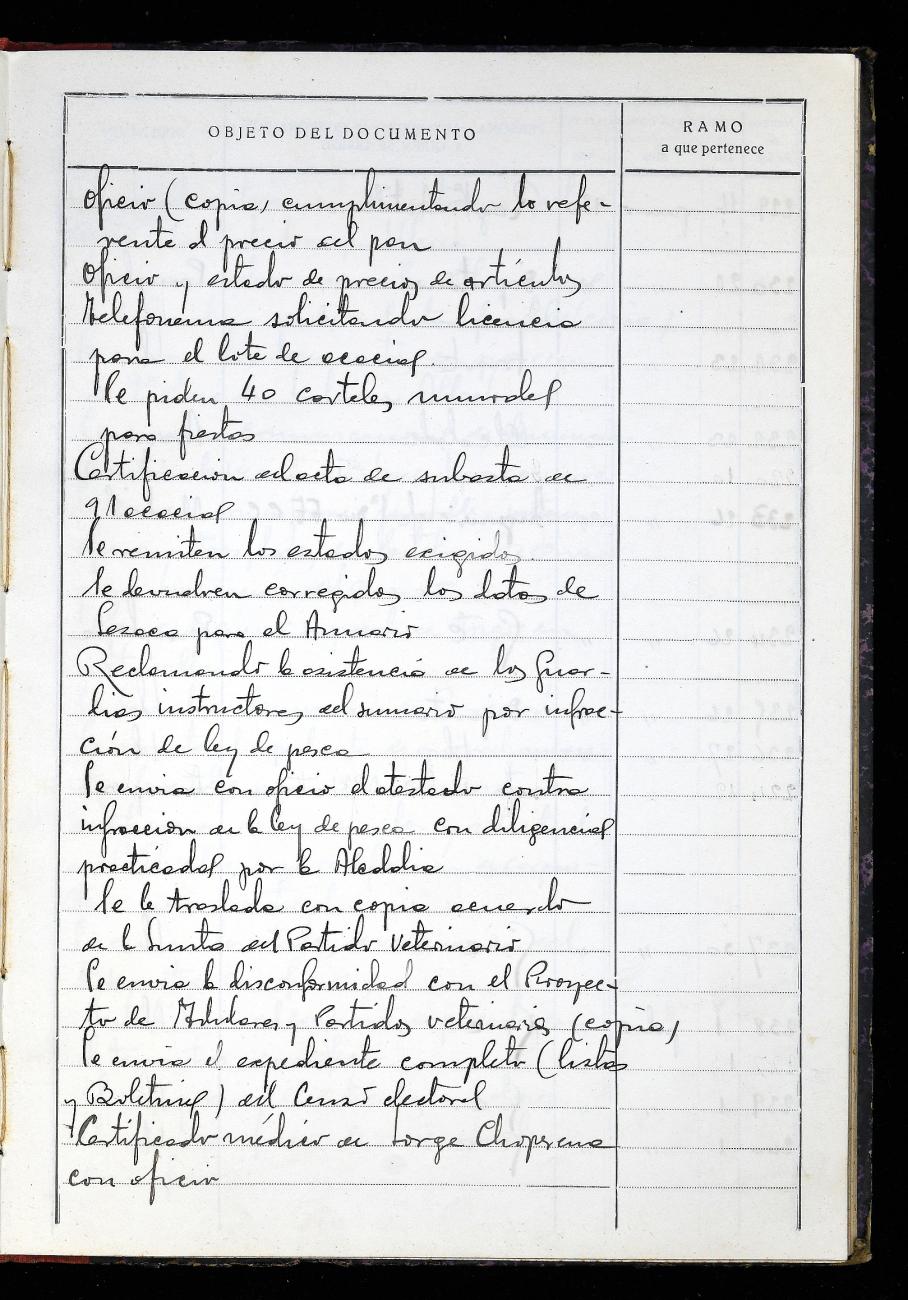 OBJETO DEL DOCUMENTO
RAMO
a que pertenece
Oficio (copia) cumplimentando lo refe-
rente al precio del pan
Oficio y estado de precios de artículos
Telefonema solicitando licencia
para el lote de acacias
Se piden 40 carteles murales
para fiestas
Certificacion del acta de subasta de
91 acacias
Se remiten los estados exigidos
Se devuelven corregidos los datos de
Lesaca para el Anuario
Reclamando la asistencia de los Guar-
dias instructores del sumario por infrac-
ción de ley de pesca
Se envia con oficio el atestado contra
infraccion de la ley de pesca con diligencias
practicadas por la Alcaldia
Se le traslada con copia acuerdo
de la Junta del Partido Veterinario
Se envia la disconformidad con el Proyec-
to de Titulares y Partidos veterinarios (copia)
Se envia el expediente completo (listas
y Boletines) del Censo electoral
Certificado médico de Jorge Choperena
con oficio